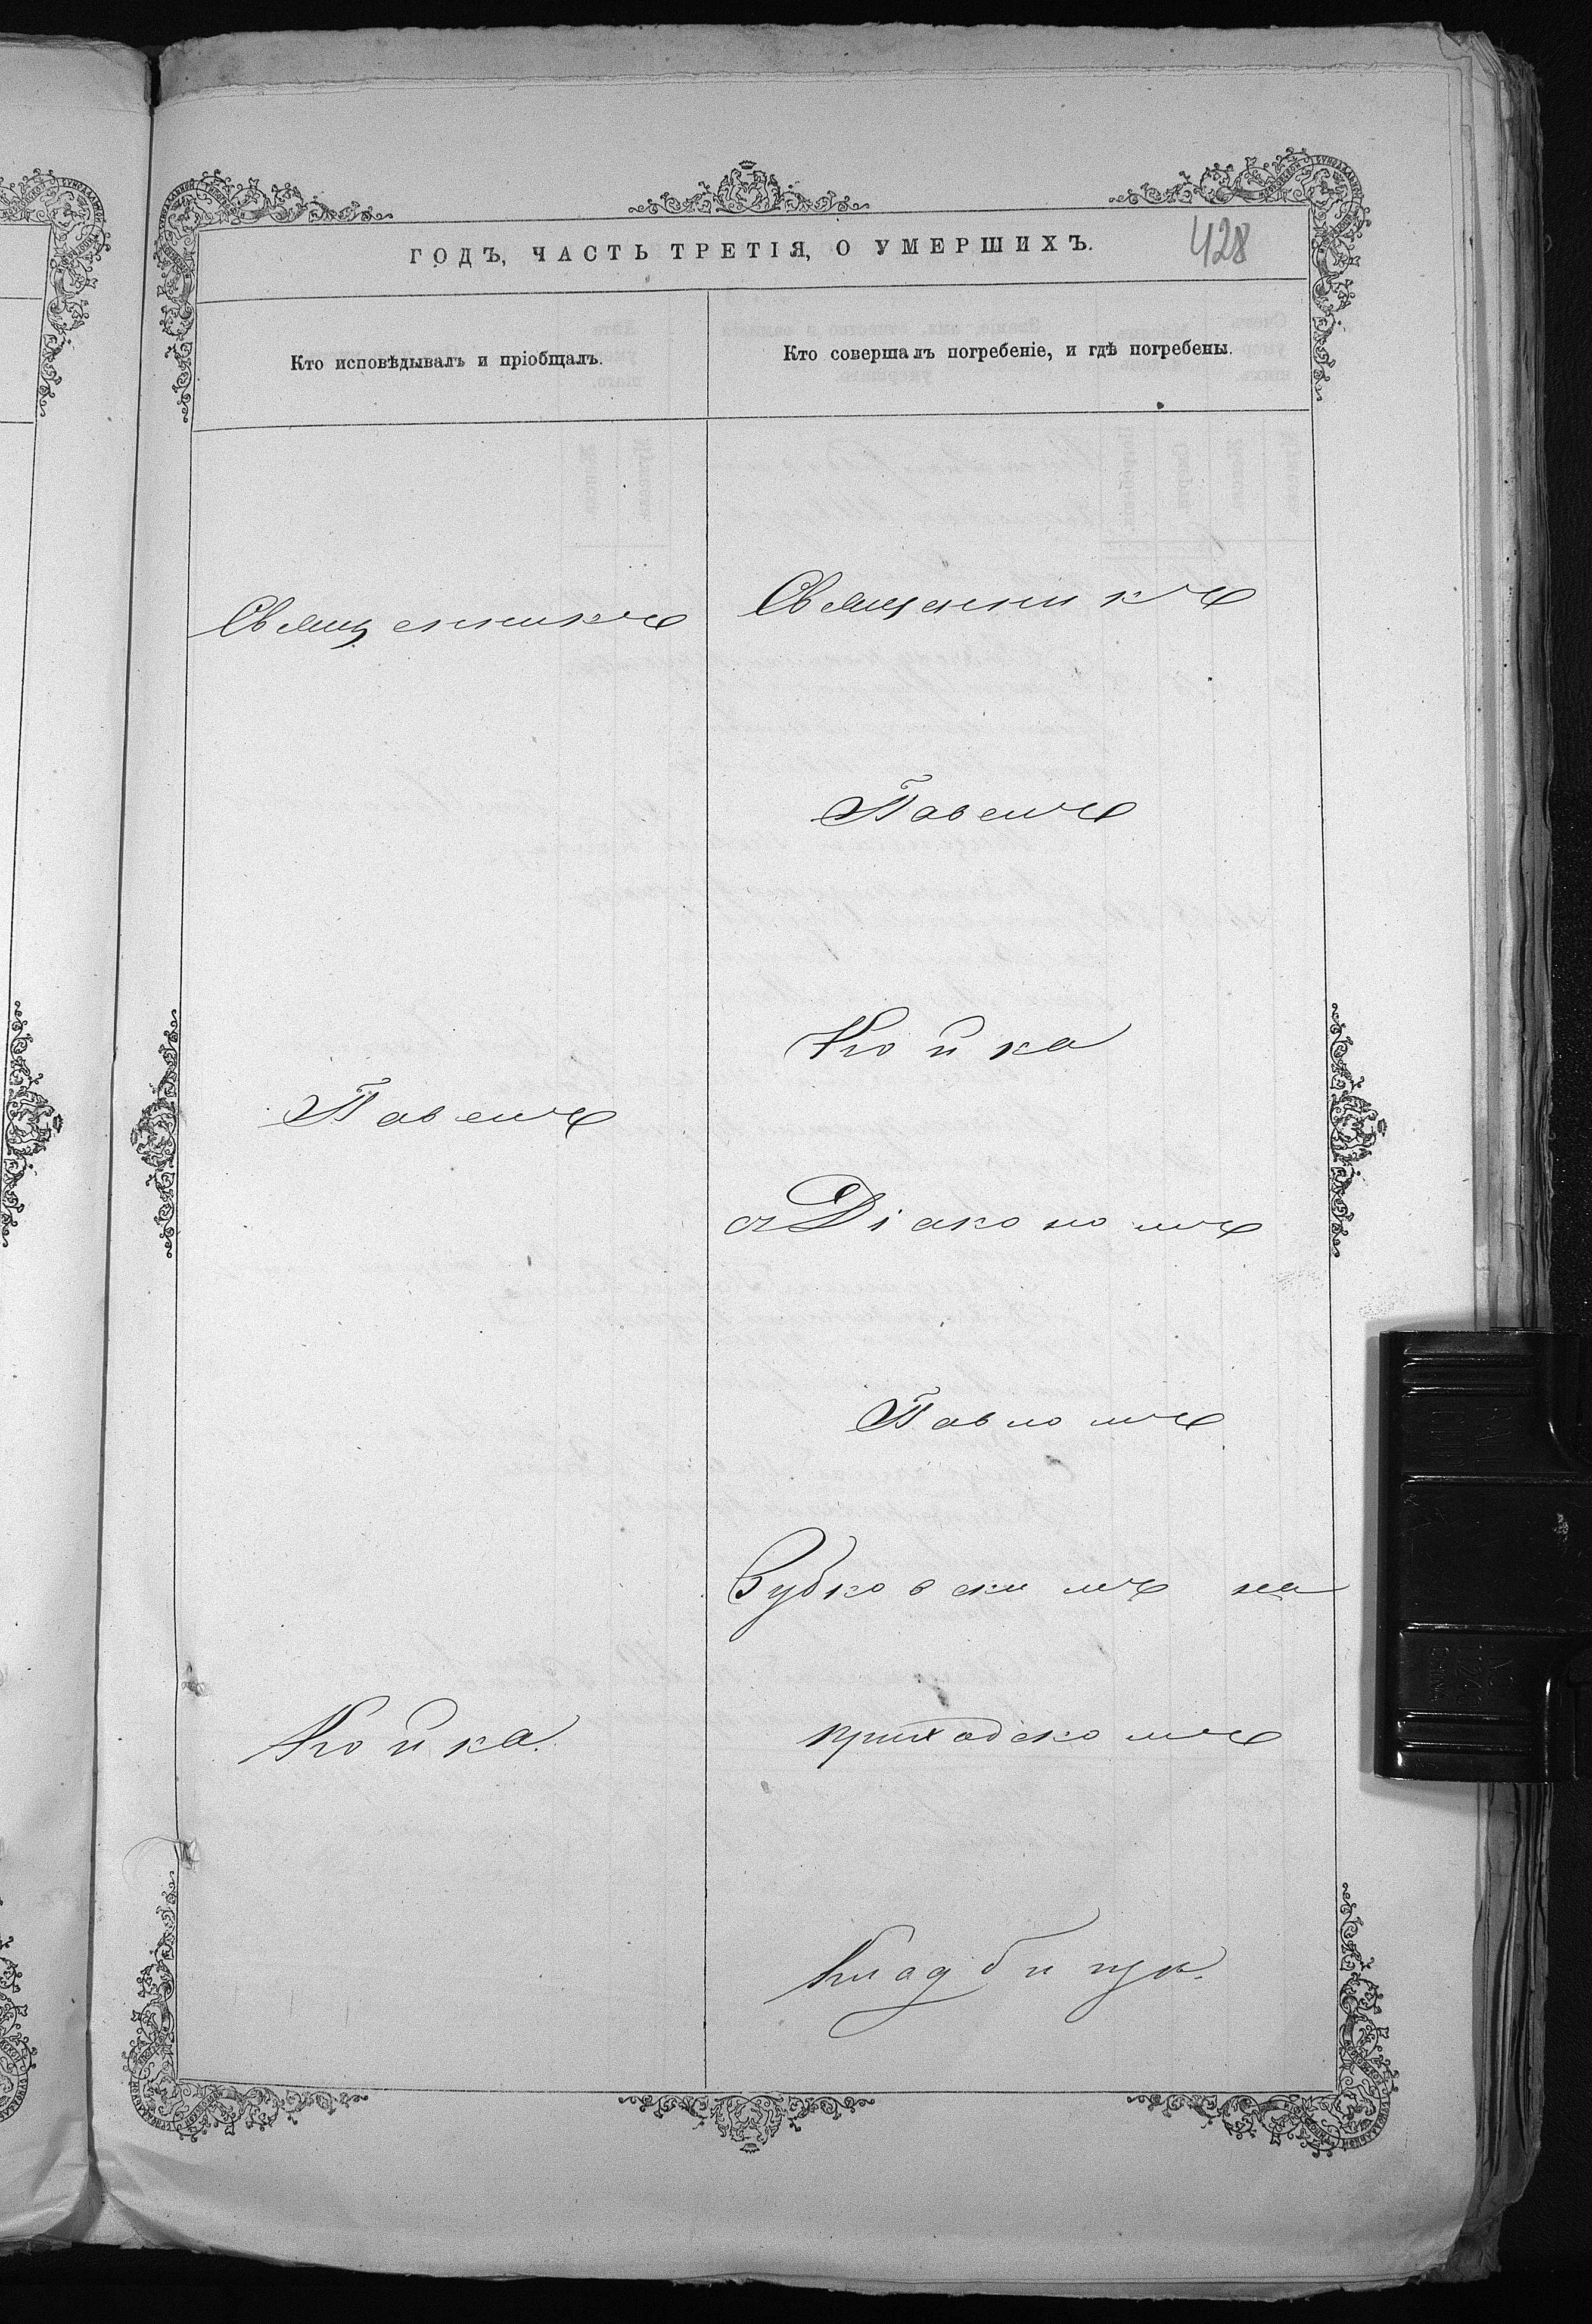 ГОДЪ, ЧАСТЬ ТРЕТІЯ, О УМЕРШИХЪ.
428
Кто исповѣдывалъ и пріобщалъ.
Священникъ
Павелъ
Койка.
Кто совершалъ погребеніе, и гдѣ погребены.
Священникъ
Павелъ
Койка
съ Діакономъ
Павломъ
Зубковскимъ на
приходскомъ
кладбищѣ.